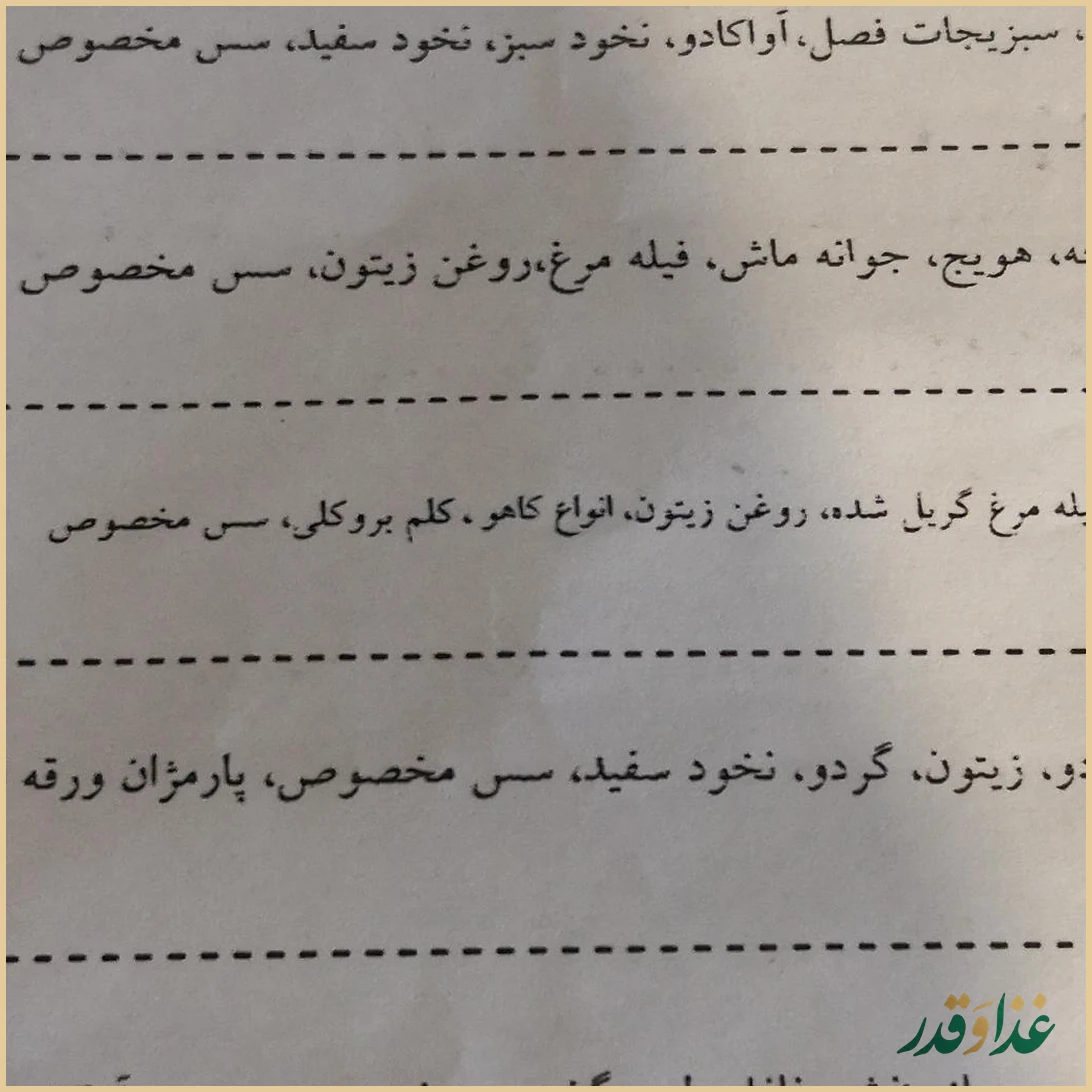 ، سبزیجات فصل، آواکادو، نخود سبز، نخود سفید، سس مخصوص
هویج، جوانه ماش، فیله مرغ،روغن زیتون، سس مخصوص
مرغ گریل شده، روغن زیتون، انواع کاهو، کلم بروکلی، سس مخصوص
زیتون، گردو، نخود سفید، سس مخصوص، پارمژان ورقه
غذا و قدر